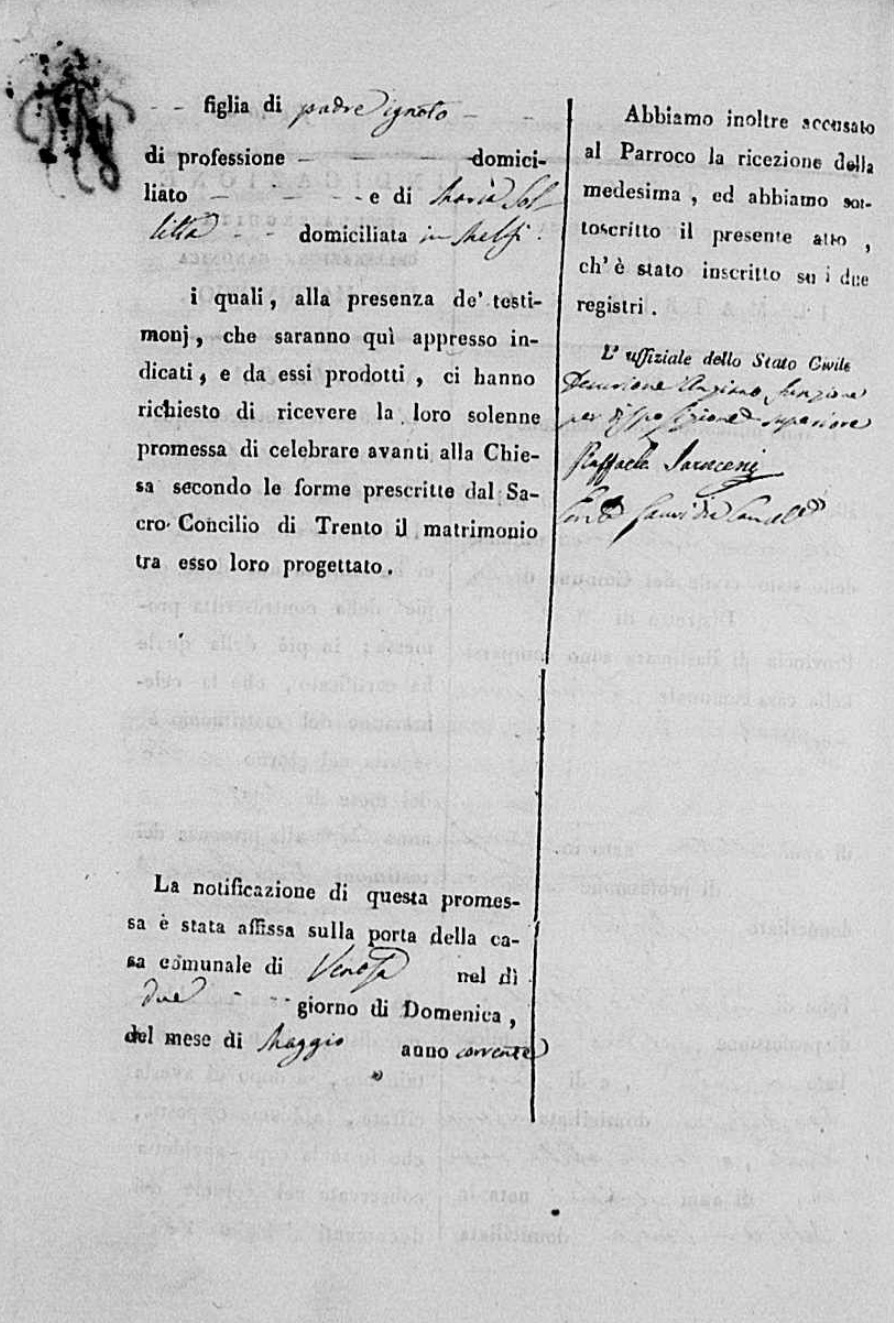 - - figlia di padre ignoto - -
di professione - - - domici-
liato - - - e di Maria Sol-
litta - - domiciliata in Melfi.
i quali, alla presenza de' testi-
monj, che saranno quì appresso in-
dicati, e da essi prodotti, ci hanno
richiesto di ricevere la loro solenne
promessa di celebrare avanti alla Chie-
sa secondo le forme prescritte dal Sa-
cro Concilio di Trento il matrimonio
tra esso loro progettato.
La notificazione di questa promes-
sa è stata affissa sulla porta della ca-
sa comunale di Venosa nel dì
due - - giorno di Domenica,
del mese di Maggio anno corrente
Abbiamo inoltre accusato
al Parroco la ricezione della
medesima, ed abbiamo sot-
toscritto il presente atto,
ch'è stato inscritto su i due
registri.
L'uffiziale dello Stato Civile
Decurione Anziano funzione
per disposizione superiore
Raffaele Saraceni